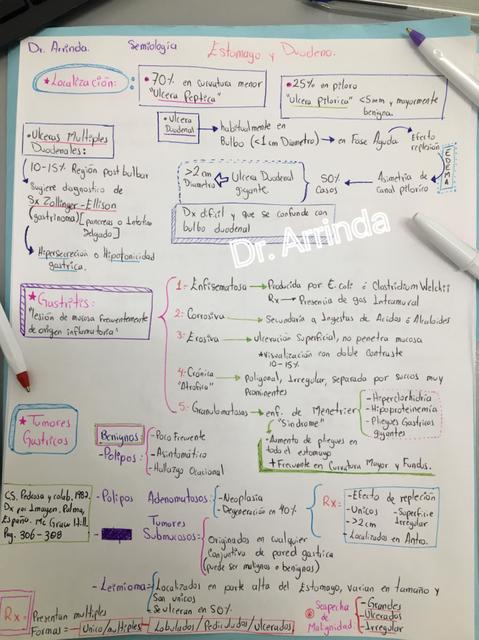 Dr. Arrinda.
Semiología
Estomago y Duodeno.
★Localización:
•70% en curvatura menor
"Ulcera Peptica"
•25% en piloro
"Ulcera Pilorica" <5mm y mayormente
benigna.
•Ulcera
Duodenal
habitualmente en
Bulbo (<1cm Diametro)
en Fase Aguda
Efecto
repleción
EDEMA
Asimetria de
canal pilorico
50%
Casos
Ulcera Duodenal
gigante
>2cm
Diametro
Dx dificil y que se confunde con
bulbo duodenal
•Ulceras Multiples
Duodenales:
10-15% Región post bulbar
Sugiere diagnostico de
Sx Zollinger-Ellison
(gastrinoma)[pancreas o Intestino
Delgado]
Hipersecreción o Hipotonicidad
gastrica.
Dr. Arrinda
★Gastritis:
"lesión de mucosa frecuentemente
de origen inflamatoria"
1.- Enfisematosa → Producida por E.coli ó Clostridium Welchii
Rx → Presencia de gas Intramural
2.- Corrosiva → Secundaria a Ingestas de Acidos ó Alcaloides
3.- Erosiva → ulceración Superficial, no penetra mucosa
*Visualización con doble contraste
10-15%
4.- Crónica
"Atrofica"
→ Poligonal, Irregular, separado por surcos muy
Prominentes
5.- Granulomatosas → enf. de Menetrier
"Sindrome"
-Hiperclorhidria
-Hipoproteinemia
-Pliegues Gastricos
gigantes
-Aumento de pliegues en
todo el estomago
+Frecuente en Curvatura Mayor y Fundus.
★Tumores
Gastricos
Benignos
-Polipos
-Poco Frecuente
-Asintomático
-Hallazgo Ocasional
CS. Pedrosa y colab. 1982.
Dx por Imagen. Palma,
España. Mc Graw Hill.
Pag. 306-308
-Polipos Adenomatosos:
-Neoplasia
-Degeneración en 40%
Rx=
-Efecto de repleción
-Unicos
-Superficie
Irregular
->2cm
-Localizados en Antro.
Tumores
Submucosos:
Originados en cualquier
Conjuntivo de pared gastrica
(puede ser malignos o benignos)
-Leimioma=
Localizados en parte alta del Estomago, varian en tamaño y
Son unicos
Se ulceran en 50%
Rx=
Presentan multiples
Formas= -Unico/multiples- Lobulados/Pediculados/ulcerados
*Sospecha de
Malignidad
-Grandes
-Ulcerados
-Irregular